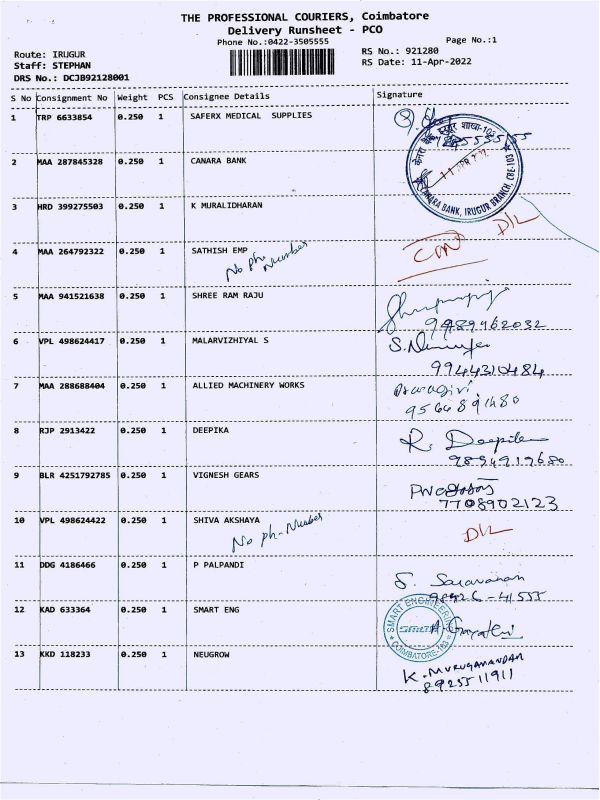 THE PROFESSIONAL COURIERS, Coimbatore
Delivery Runsheet - PCO
Phone No.:0422-3505555
Page No.:1
Route: IRUGUR
RS No.: 921280
Staff: STEPHAN
RS Date: 11-Apr-2022
DRS No.: DCJB92128001
S No Consignment No Weight PCS Consignee Details Signature
1 TRP 6633854 0.250 1 SAFERX MEDICAL SUPPLIES
2 MAA 287845328 0.250 1 CANARA BANK
CANARA BANK, IRUGUR BRANCH, CBE-103
3 HRD 399275503 0.250 1 K MURALIDHARAN D/L
4 MAA 264792322 0.250 1 SATHISH EMP
No ph. Number
5 MAA 941521638 0.250 1 SHREE RAM RAJU
9489962032
6 VPL 498624417 0.250 1 MALARVIZHIYAL S
9944310484
7 MAA 288688404 0.250 1 ALLIED MACHINERY WORKS
9566891480
8 RJP 2913422 0.250 1 DEEPIKA R. Deepika
9894919680
9 BLR 4251792785 0.250 1 VIGNESH GEARS
7708902123
10 VPL 498624422 0.250 1 SHIVA AKSHAYA D/L
No ph- Number
11 DDG 4186466 0.250 1 P PALPANDI S. Saravanan
98426-41555
12 KAD 633364 0.250 1 SMART ENG
SMART ENGINEERING
COIMBATORE-103
13 KKD 118233 0.250 1 NEUGROW K. MURUGANANDAM
8925511911